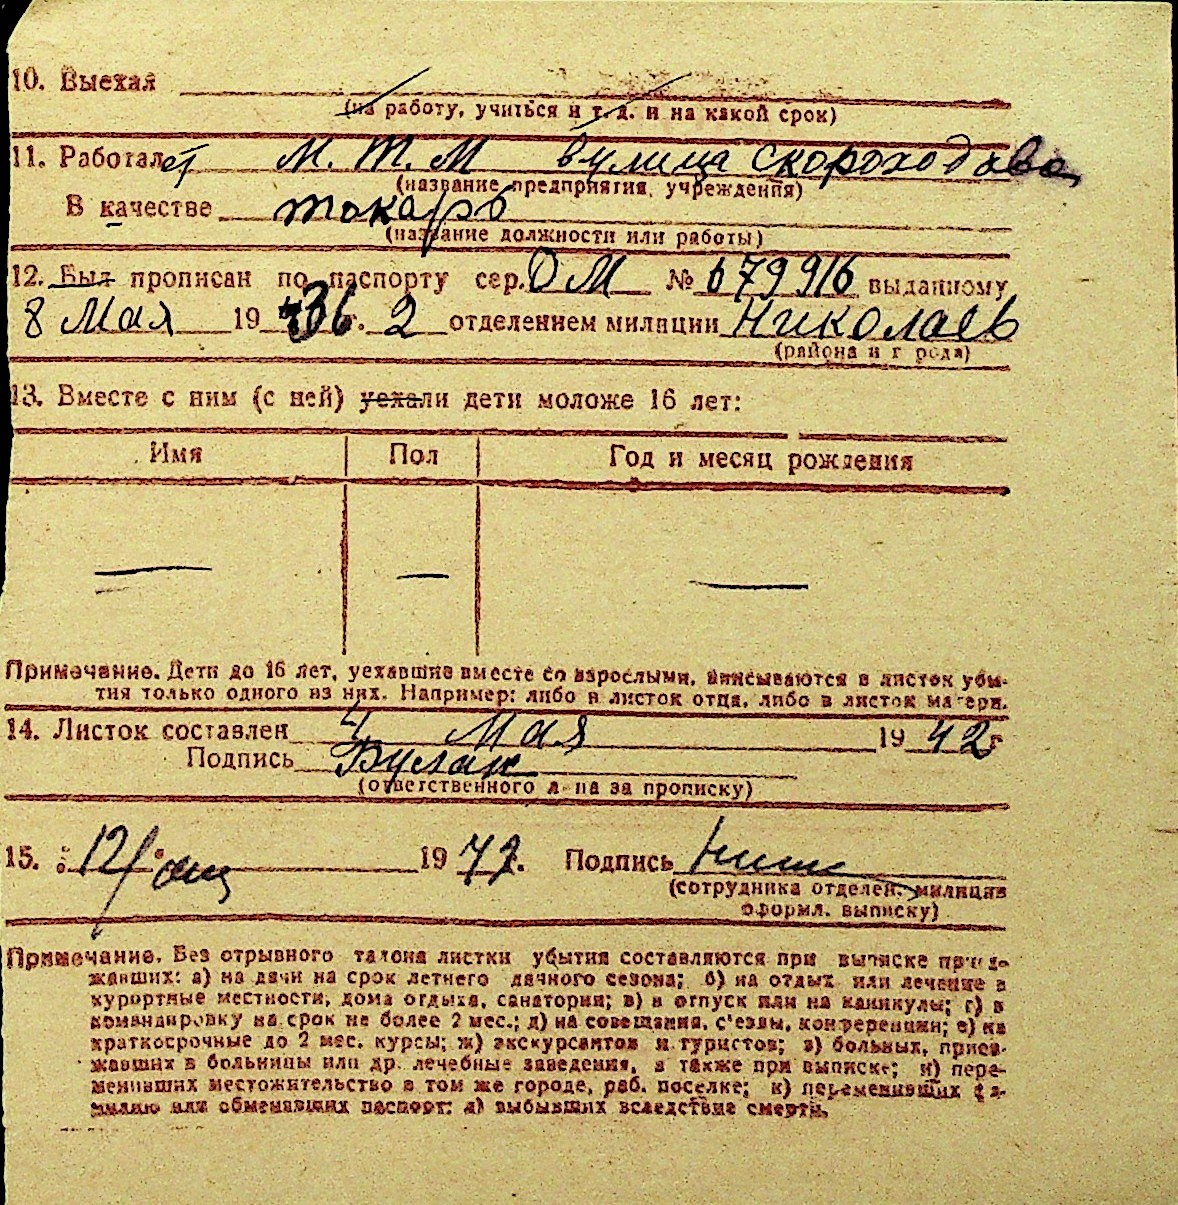 10. Выехал
(на работу, учиться и т. д. и на какой срок)
11. Работает М. Т. М вулица Скороходова
(название предприятия, учреждения)
В качестве токарь
(название должности или работы)
12. Был прописан по паспорту сер. ОМ № 679916 выданному
8 Мая 1936 г. 2 отделением милиции Николаев
(района и города)
13. Вместе с ним (с ней) уехали дети моложе 16 лет:
Имя Пол Год и месяц рождения
Примечание. Дети до 16 лет, уехавшие вместе со взрослыми, вписываются в листок убы-
тия только одного из них. Например: либо в листок отца, либо в листок матери.
14. Листок составлен 4 Мая 1942 г
Подпись
(ответственного лица за прописку)
15. 12/ 19 г. Подпись
(сотрудника отделен. милиции
оформл. выписку)
Примечание. Без отрывного талона листки убытия составляются при выписке приез-
жавших: а) на дачи на срок летнего дачного сезона; б) на отдых или лечение в
курортные местности, дома отдыха, санатории; в) в отпуск или на каникулы; г) в
командировку на срок не более 2 мес.; д) на совещания, с'езды, конференции; е) на
краткосрочные до 2 мес. курсы; ж) экскурсантов и туристов; з) больных, приез-
жавших в больницы или др. лечебные заведения, а также при выписке; и) пере-
менивших местожительство в том же городе, раб. поселке; к) переменивших фа-
милию или обменявших паспорт; л) выбывших вследствие смерти.